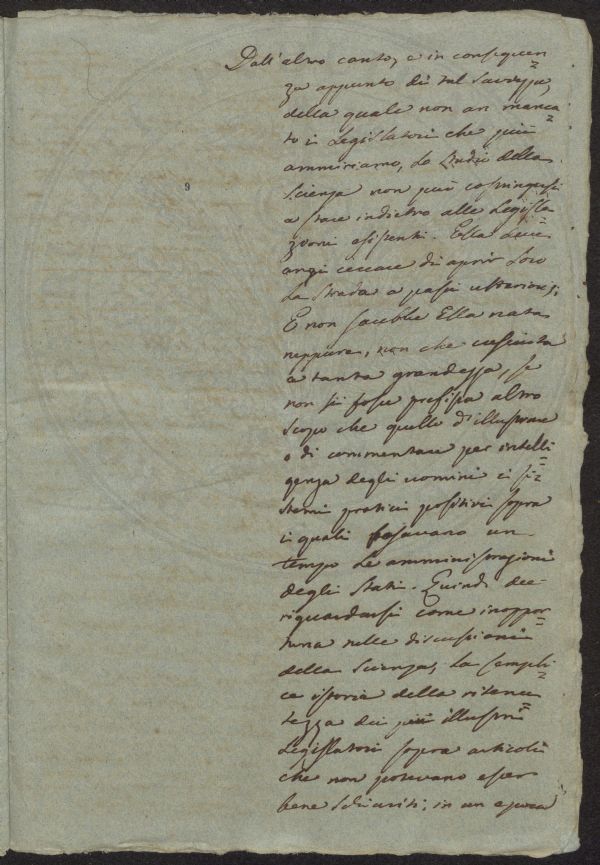 Dall'altro canto, e in conseguen=
za appunto di tal saviezza,
della quale non an manca=
to i Legislatori che più
ammiriamo, lo Studio della
Scienza non può costringersi
a stare indietro alle Legisla=
zioni esistenti. Ella deve
anzi cercare di aprir loro
la Strada a passi ulteriori;
E non sarebbe Ella nata
neppure, non che cresciuta
a tanta grandezza, se
non si fosse prefissa altro
scopo che quello d'illustrare
o di commentare per intelli=
genza degli uomini i si=
stemi pratici positivi sopra
i quali posavano un
tempo le amministrazioni
degli Stati. Quindi dee
riguardarsi come inoppor=
tuna nelle discussioni
della Scienza, la sempli=
ce istoria della ritenu=
tezza dei più illustri
Legislatori sopra articoli
che non potevano esser
bene schiariti; in un epoca